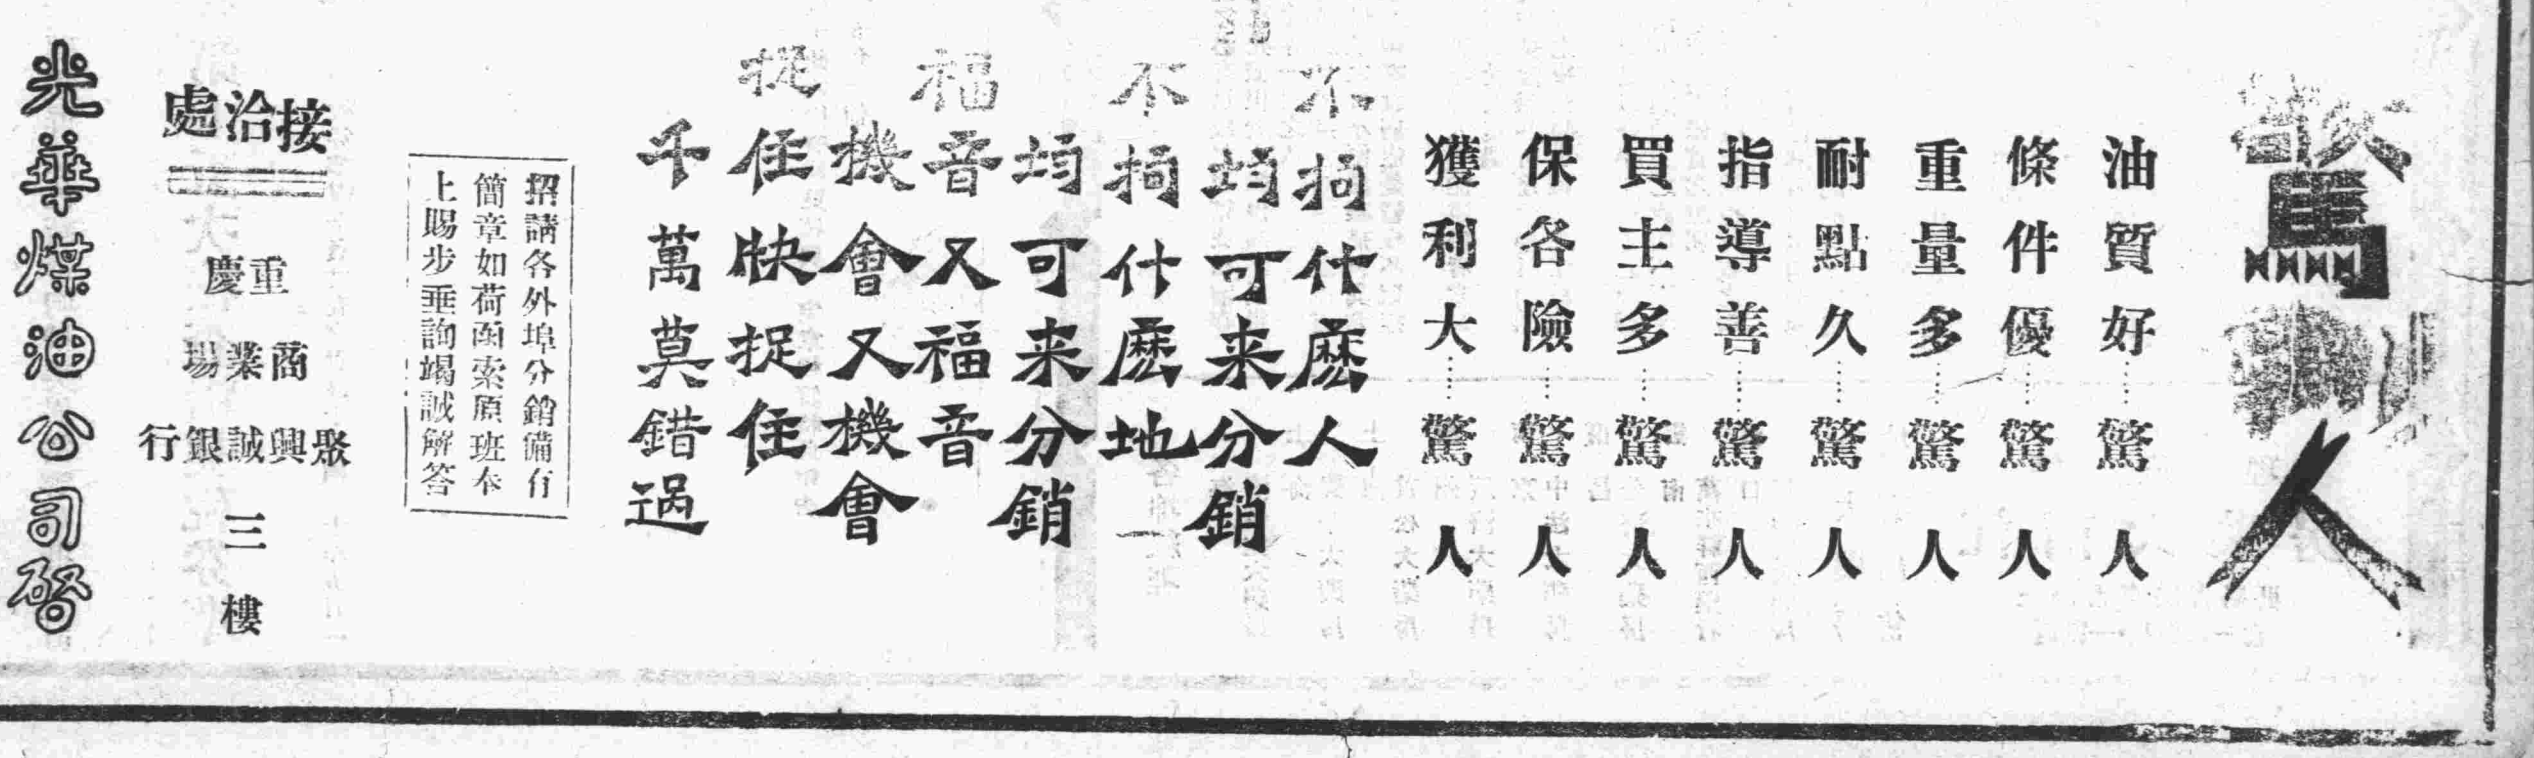 驚
人
油質好……驚人
條件優……驚人
重量多……驚人
耐點久……驚人
指導善……驚人
買主多……驚人
保各險……驚人
獲利大……驚人
不拘什麽人
均可来分銷
不拘什麽地
均可来分銷
福音又福音
機會又機會
捉住快捉住
千萬莫錯過
招請各外埠分銷備有
簡章如荷函索原班本
上賜步垂詢竭誠解答
接洽處
重慶
商業場
聚興誠銀行
三樓
光華煤油公司啓